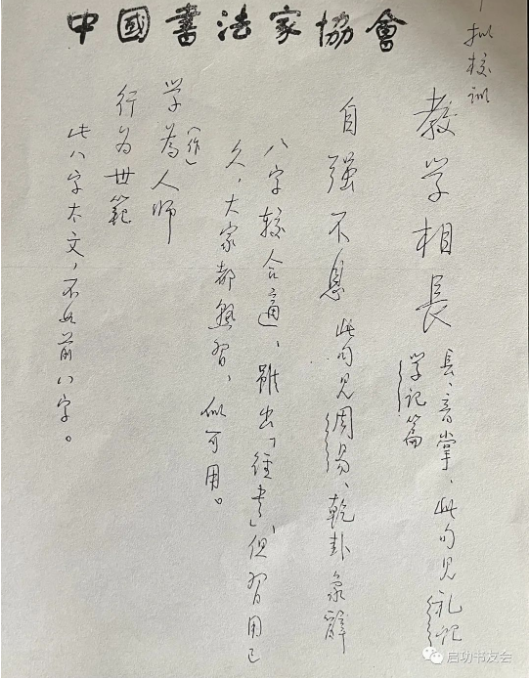 中國書法家協會
拟校训
教学相長 長、音掌、此句见礼记
学记篇
自强不息 此句见周易、乾卦象辞
八字较合适、虽出「经书」、但習用已
久，大家都熟習，似可用。
学為人师
(作)
行为世範
此八字太文，不如前八字。
启功书友会